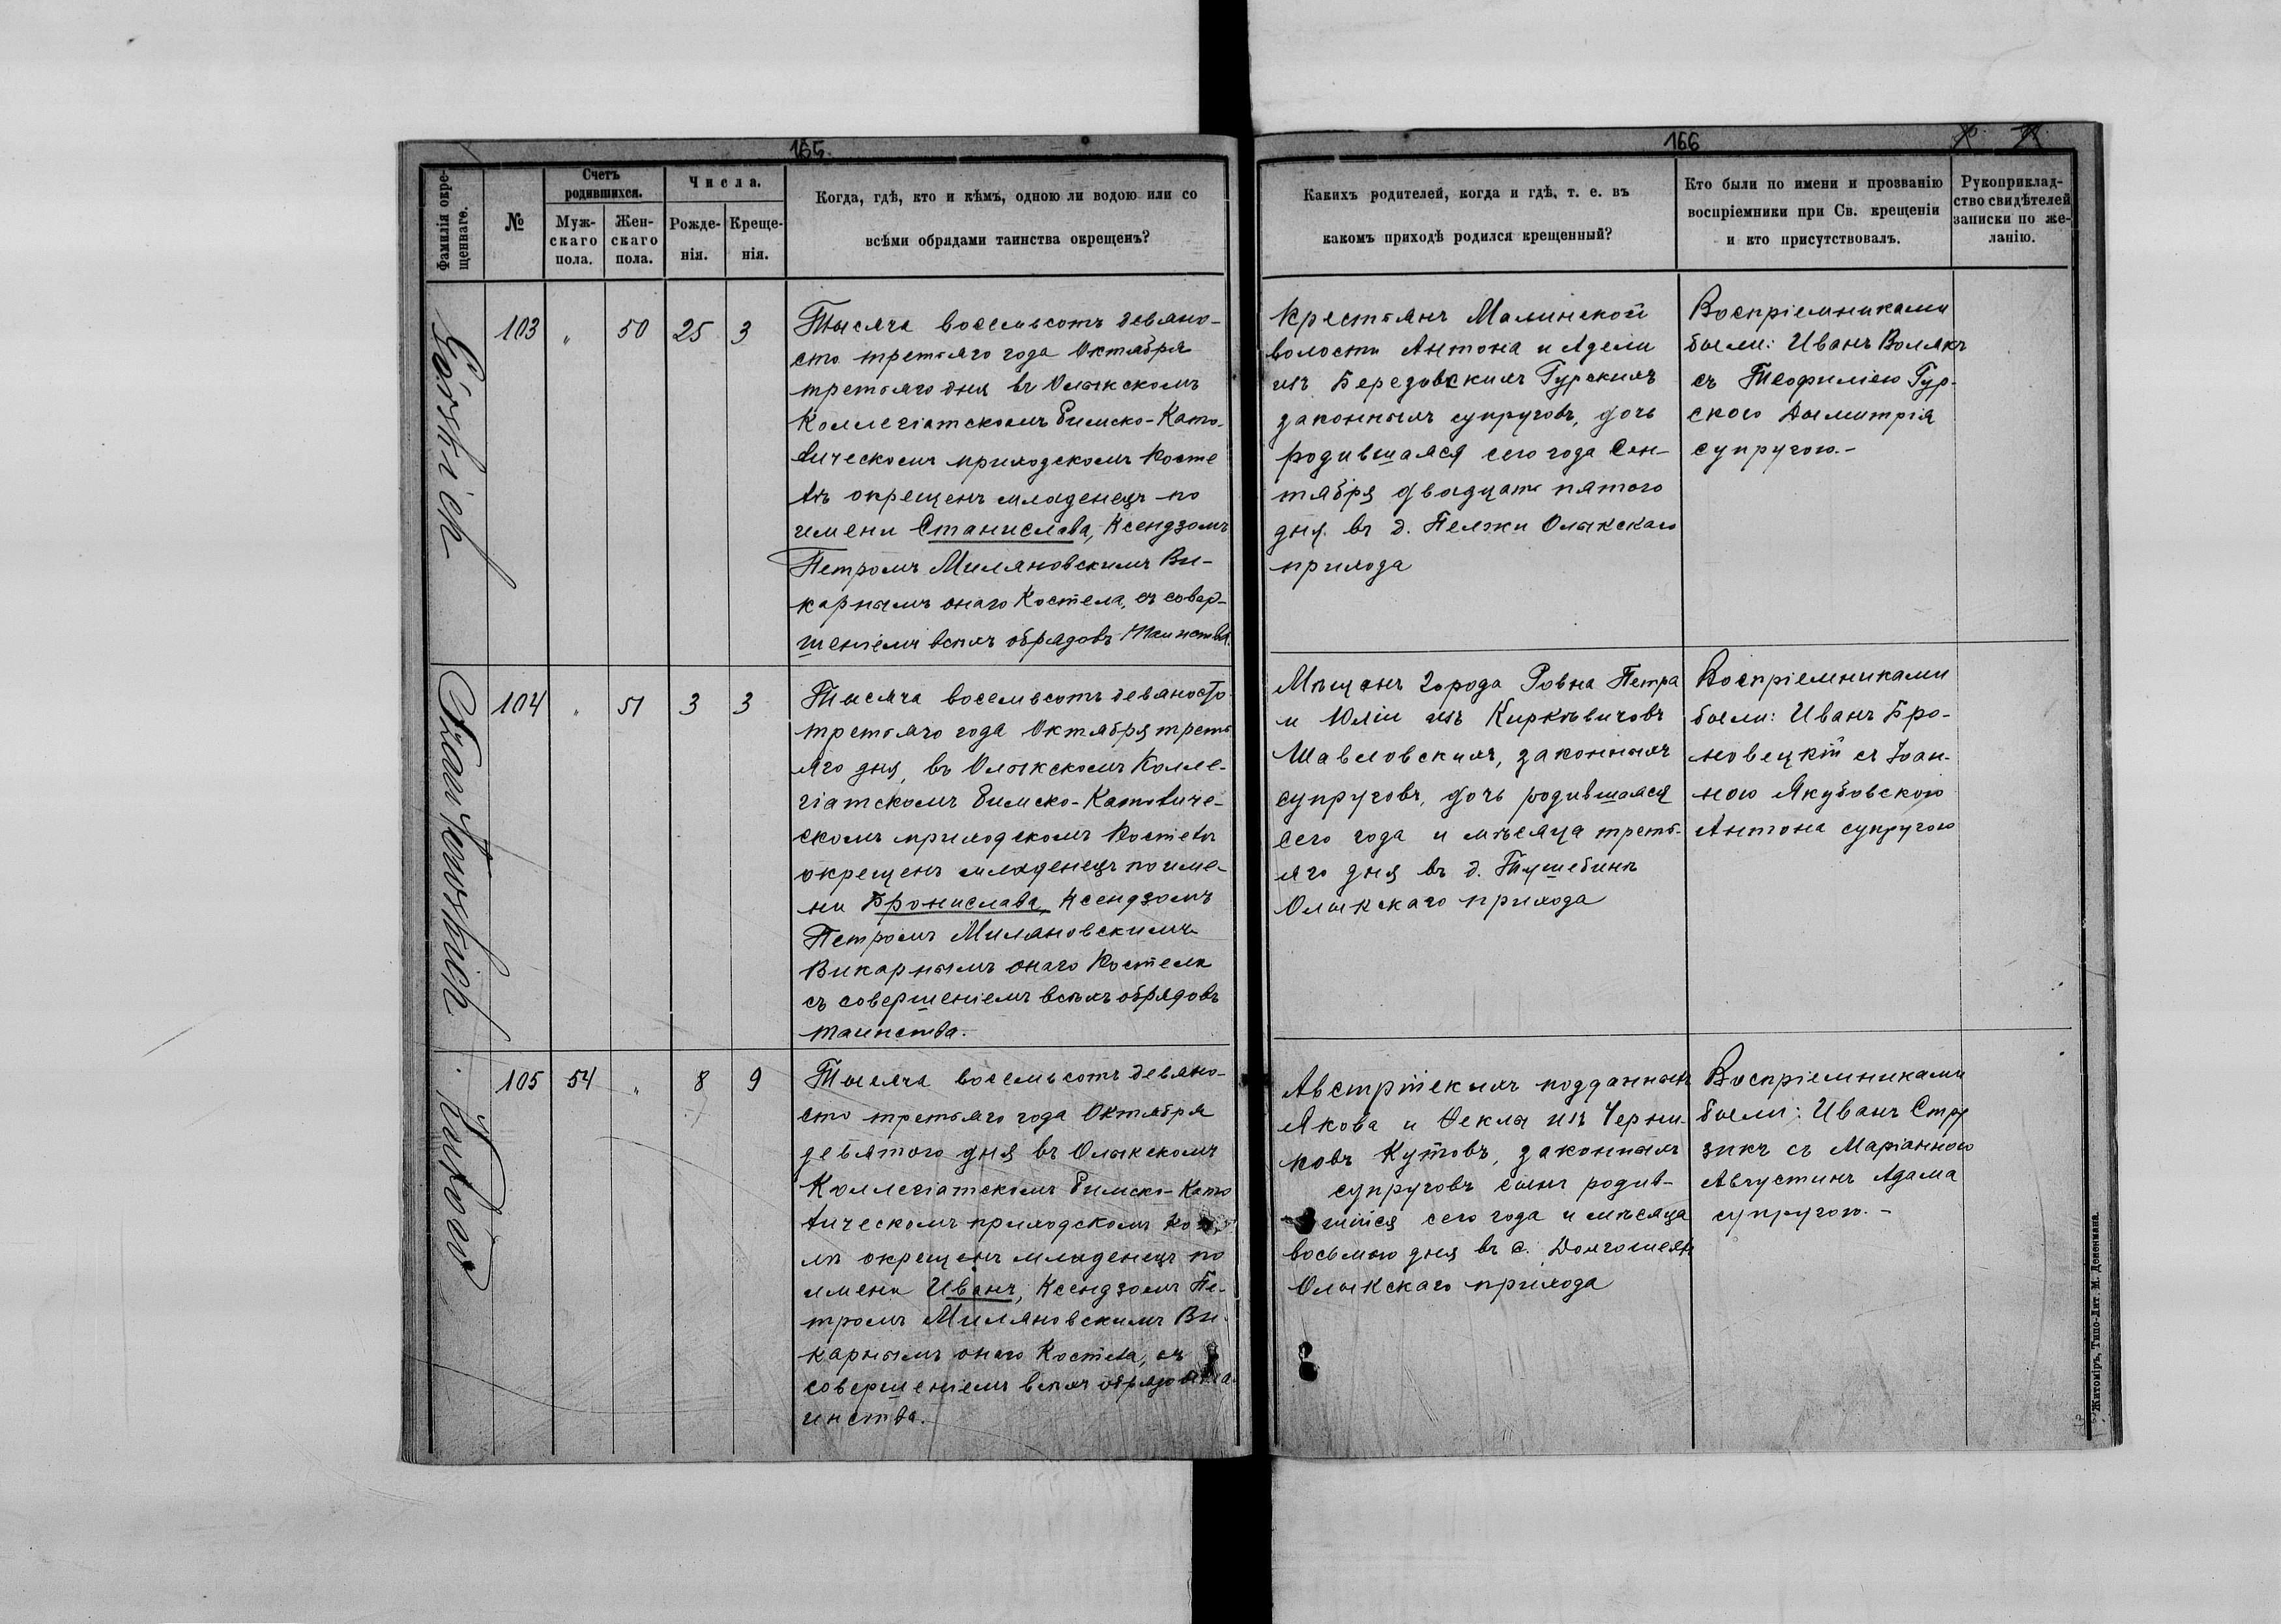 165.
Фамилія окре-
щеннаго.
№
Счетъ
родившихся.
Муж-
скаго
пола.
Жен-
скаго
пола.
Числа.
Рожде-
нія.
Креще-
нія.
Когда, гдѣ, кто и кѣмъ, одною ли водою или со
всѣми обрядами таинства окрещенъ?
Górskich
103 " 50 25 3
Тысяча восемьсотъ девяно-
сто третьяго года Октября
третьяго дня въ Олыкскомъ
Коллегіатскомъ Римско-Като-
лическомъ приходскомъ Косте
лѣ окрещенъ младенецъ по
имени Станислава, Ксендзомъ
Петромъ Миляновскимъ Ви-
карнымъ онаго Костела, съ совер-
шеніемъ всѣхъ обрядовъ Таинства.
104 " 51 3 3
Тысяча восемьсотъ девяносто
третьяго года Октября треть
яго дня, въ Олыкскомъ Колле-
гіатскомъ Римско-Католиче-
скомъ приходскомъ Костелѣ
окрещенъ младенецъ по име-
ни Бронислава, Ксендзомъ
Петромъ Миляновскимъ
Викарнымъ онаго Костела
съ совершеніемъ всѣхъ обрядовъ
таинства.
Kutów
105 54 " 8 9
Тысяча восемьсотъ девяно-
сто третьяго года Октября
девятого дня въ Олыкскомъ
Коллегіатскомъ Римско-Като
лическомъ приходскомъ
лѣ окрещенъ младенецъ по
имени Иванъ, Ксендзомъ Пе-
тромъ Миляновскимъ Ви-
карнымъ онаго Костела, съ
совершеніемъ всѣхъ обрядовъ та-
инства.
166
Какихъ родителей, когда и гдѣ, т. е. въ
какомъ приходѣ родился крещенный?
Кто были по имени и прозванію
воспріемники при Св. крещеніи
и кто присутствовалъ.
Рукоприклад-
ство свидѣтелей
записки по же-
ланію.
Крестьянъ Малинской
волости Антона и Адели
изъ Березовскихъ Гурскихъ
законныхъ супруговъ, дочь
родившаяся сего года Сен-
тября двадцать пятого
дня въ д. Пелжи Олыкскаго
прихода
Воспріемниками
были: Иванъ Волякъ
съ Теофиліею Гур-
ского Дымитрія
супругою.-
Мѣщанъ города Ровна Петра
и Юліи изъ Киркѣвичовъ
Шавловскихъ, законныхъ
супруговъ, дочь родившаяся
сего года и мѣсяца треть-
яго дня въ д. Тушебинѣ
Олыкскаго прихода
Воспріемниками
были: Иванъ Бро-
новецкій съ Іоан-
ною Якубовскою
Антона супругою
Австрійскихъ подданныхъ
Якова и Феклы изъ Черни-
ковъ Кутовъ, законныхъ
супруговъ сынъ родив-
шійся сего года и мѣсяца
восьмого дня въ с. Долгошеяхъ
Олыкскаго прихода
Воспріемниками
были: Иванъ Стру
зикъ съ Маріанною
Августинъ Адама
супругою.-
Житоміръ, Типо-Лит. М. Дененмана.